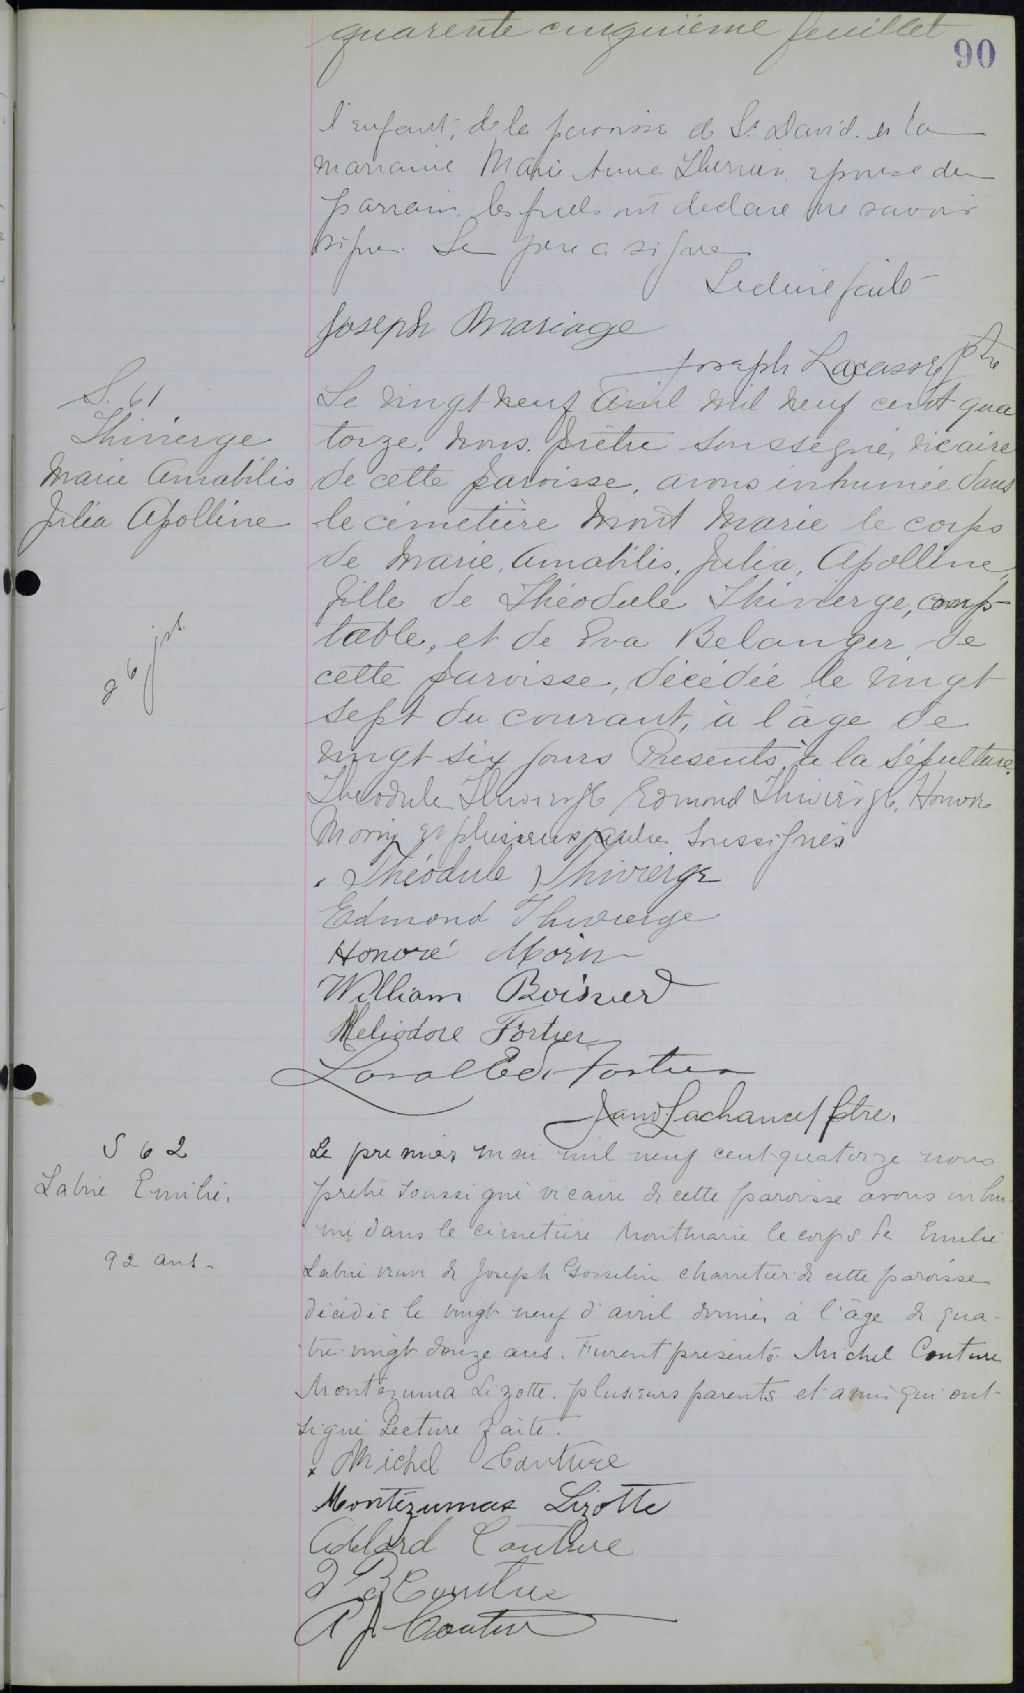 quarente cinquième feuillet
90
l'enfant, de la paroisse de St David. et la
marraine Marie Anne Therrien, epouse du
parrain. lesquels ont declaré ne savoir
signer. Le père a signé
Lecture faite
Joseph Mariage
Joseph Lacasse Ptre
S. 61
Thivierge
Marie Amabilis
Julia Apolline
26 jrs
Le vingt neuf Avril mil neuf cent qua
torze, nous, prêtre soussigné, vicaire
de cette paroisse, avons inhumée dans
le cimetière Mont Marie le corps
de Marie, Amabilis, Julia, Apolline,
fille de Théodule Thivierge, comp
table, et de Eva Belanger de
cette paroisse, décédée le vingt
sept du courant, à l'âge de
vingt six jours Présents, à la sépulture.
Theodule Thivierge, Edmond Thivierge, Honoré
Morin et plusieurs autres soussignés
Théodule Thivierge
Edmond Thivierge
Honoré Morin
William Boisverd
Heliodore Fortier
Laval Ed. Fortier
Lachance Ptre.
S 62
Labrie Emilie.
92 ans
Le premier mai mil neuf cent quatorze nous
prêtre soussigné vicaire de cette paroisse avons inhu-
mé dans le cimetière Montmarie le corps de Emilie
Labrie veuve de Joseph Gosselin charretier de cette paroisse
décédée le vingt neuf d'avril dernier à l'âge de qua-
tre-vingt douze ans. Furent présents Michel Couture
Montézuma Lizotte. plusieurs parents et amis qui ont
signé Lecture faite.
x Michel Couture
Montézumas Lizotte
Adelard Couture
Couture
P J Couture